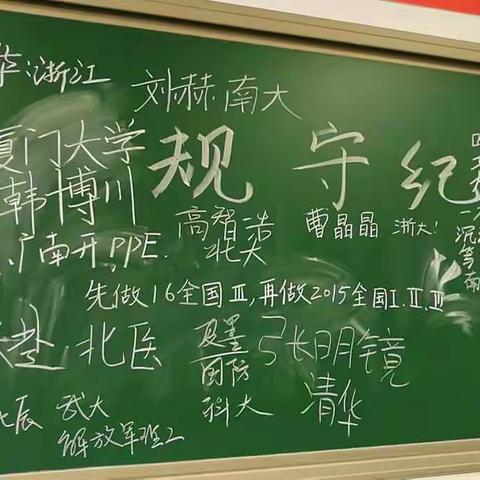 华:浙江
刘赫.南大
厦门大学
规守纪
韩博川
高智浩
北大
曹晶晶 浙大!
南开,PPE.
先做16全国Ⅲ,再做2015全国Ⅰ.Ⅱ.Ⅲ
北医
国防
科大
张明镜
清华
辰 武大
解放军理工